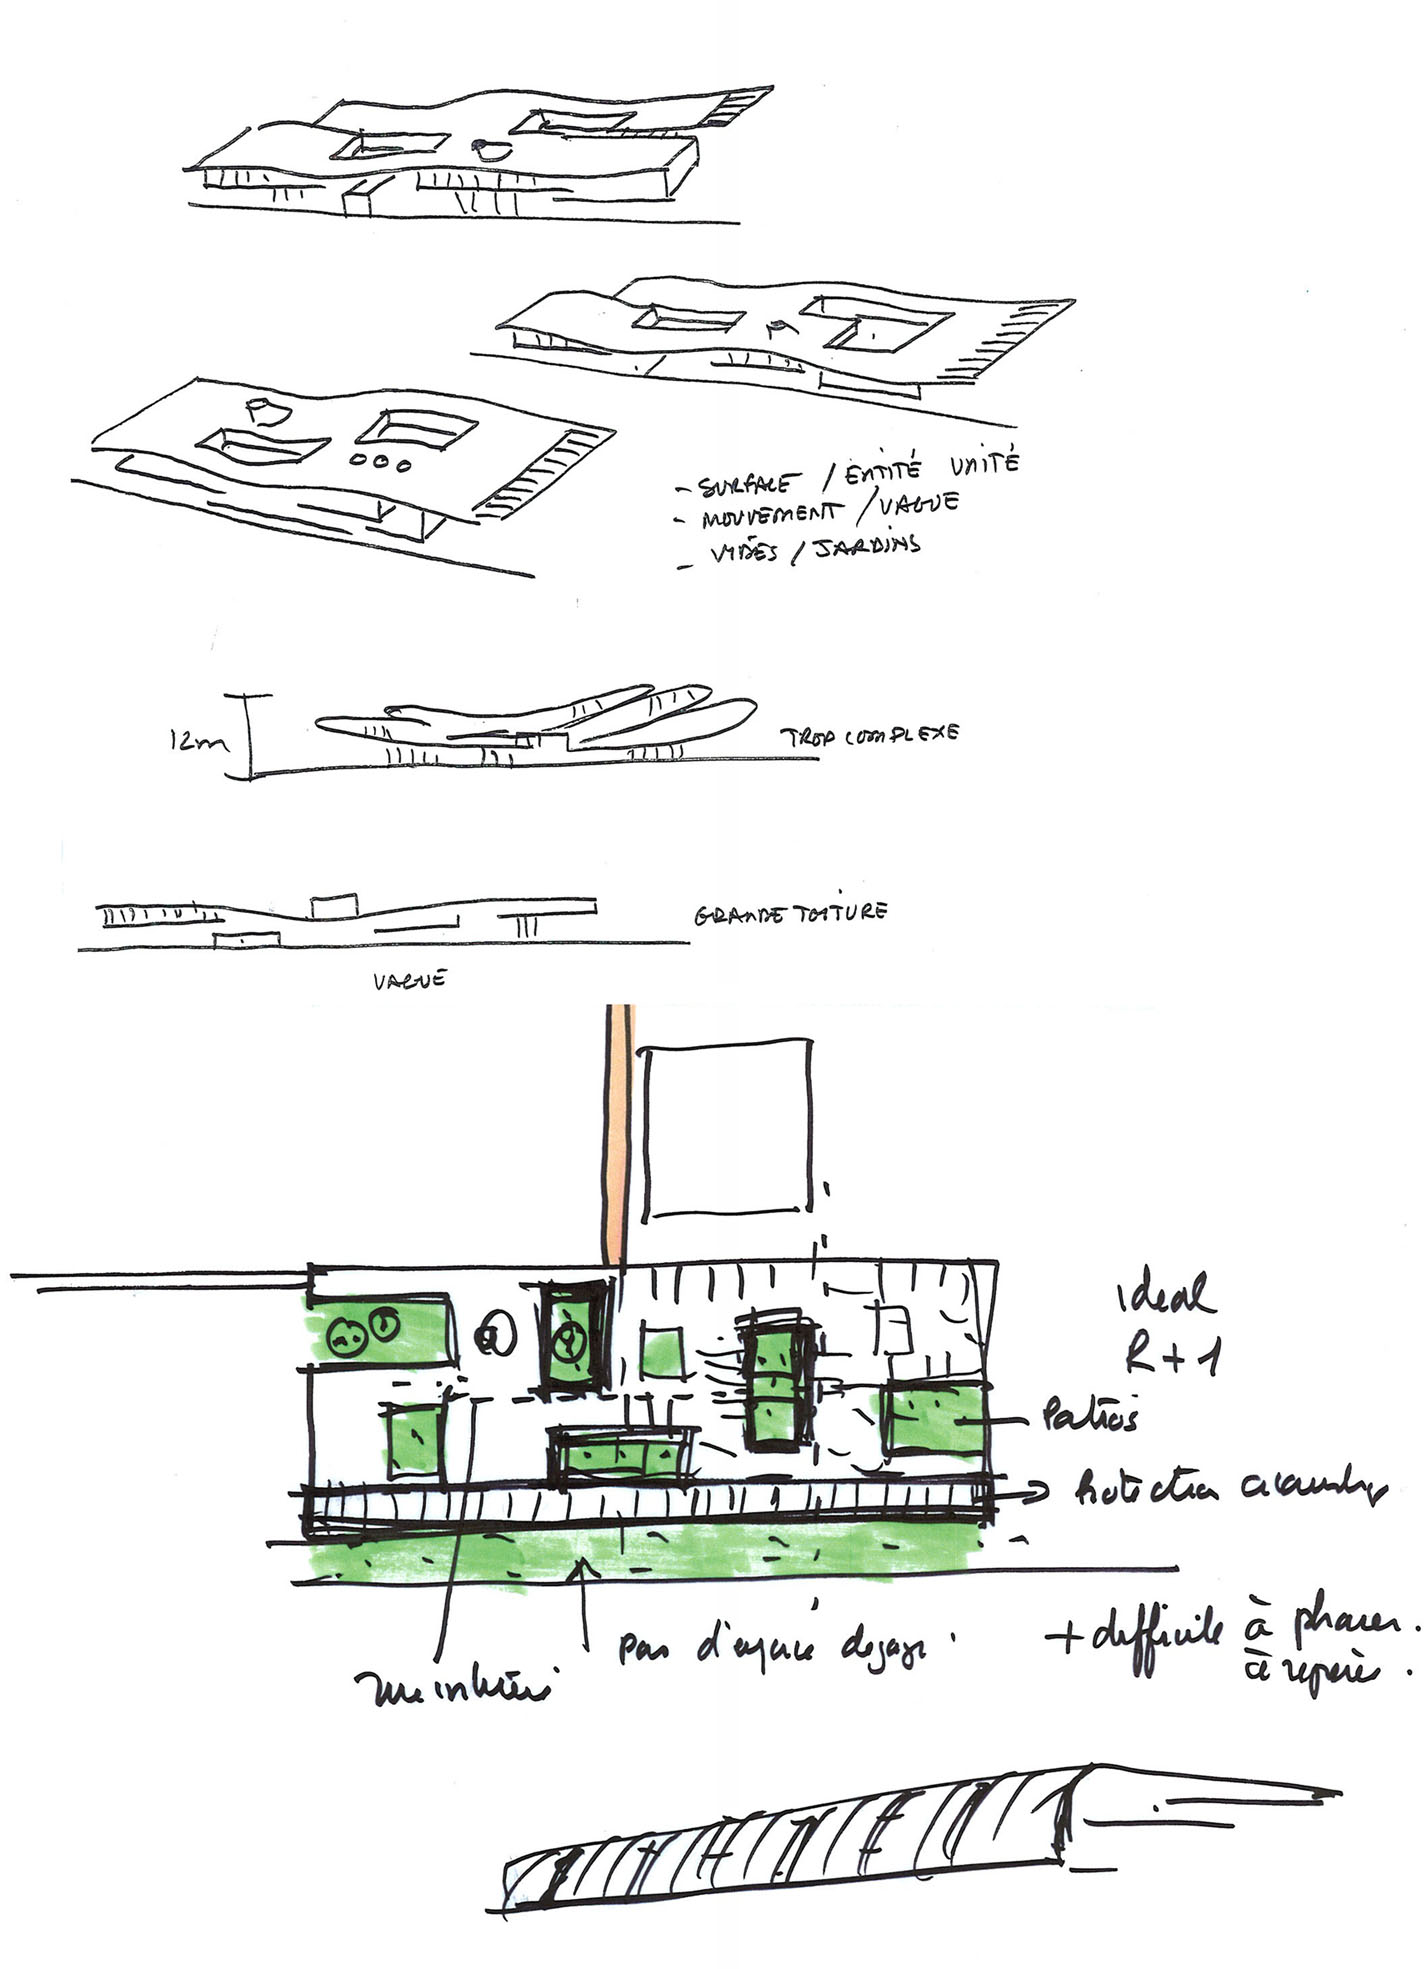 - SURFACE / ENTITÉ UNITÉ
- MOUVEMENT / VAGUE
- VIDES / JARDINS
12m
TROP COMPLEXE
GRANDE TOITURE
VAGUE
ideal
R+1
Patios
Protection acoustique
+ difficile à phaser.
à
pas d'espace dégagé.